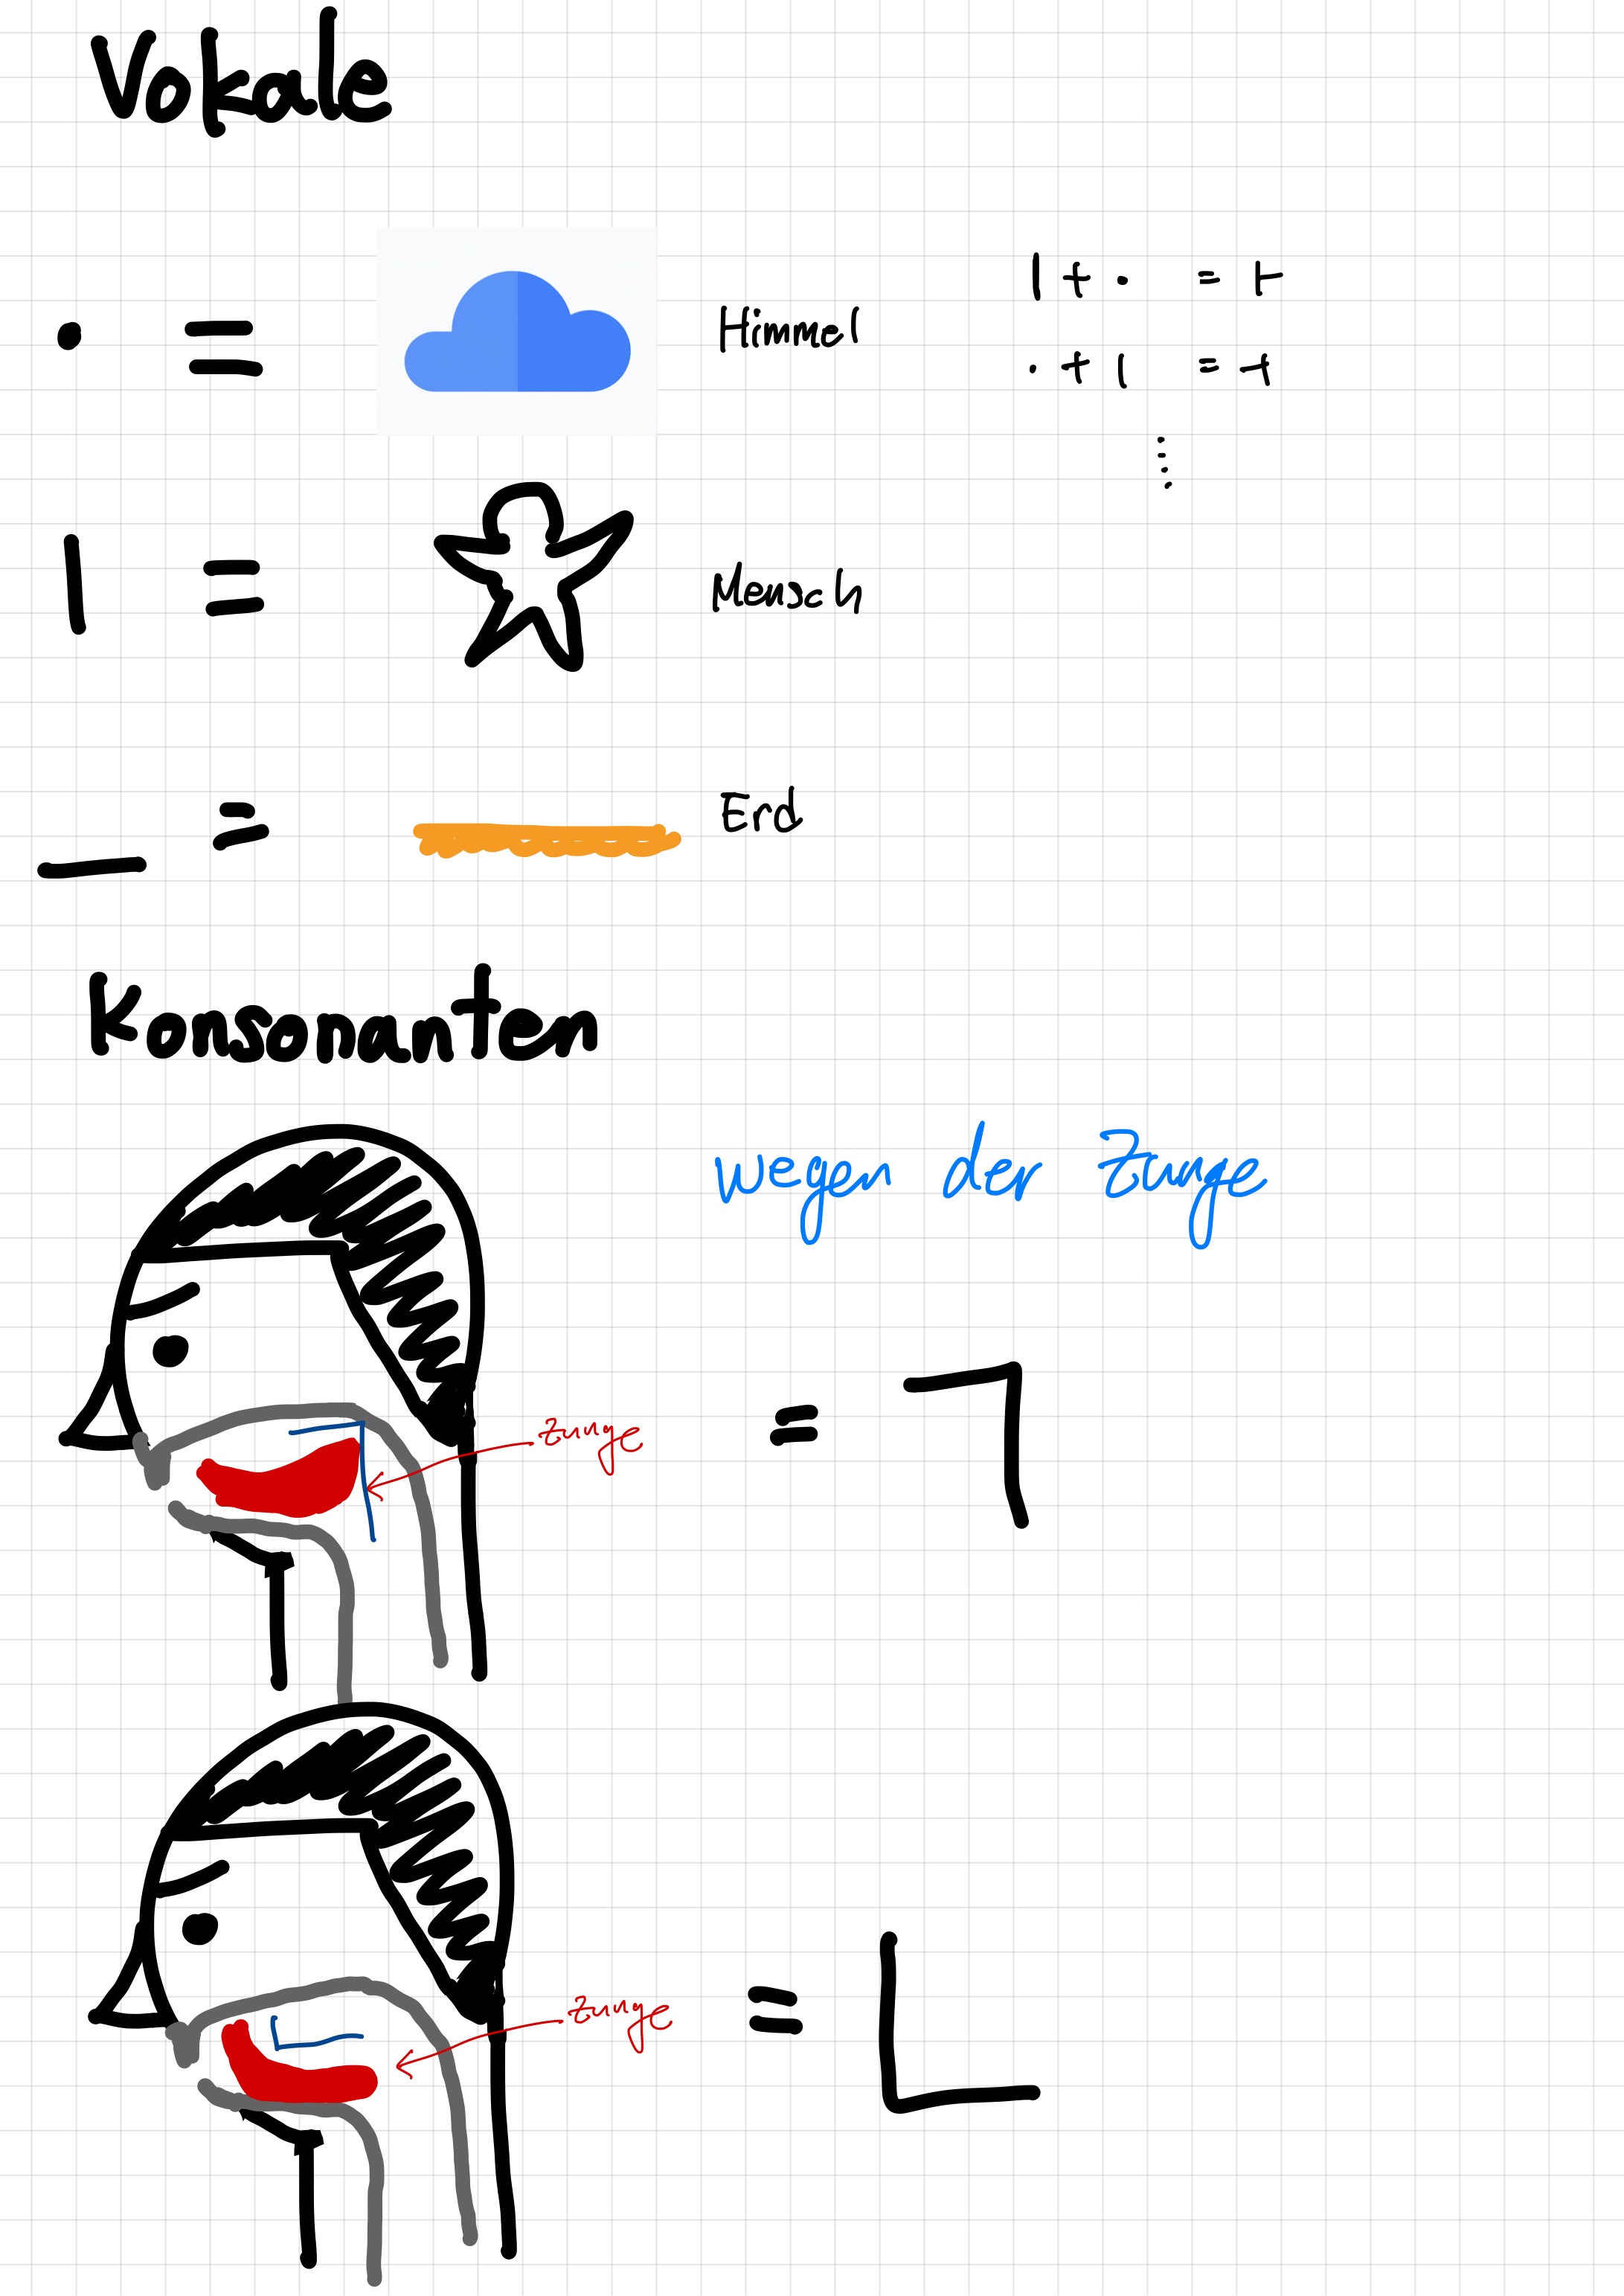 Vokale
· = Himmel
ㅣ + · = ㅏ
· + ㅣ = ㅓ
⋮
ㅣ = Mensch
ㅡ = Erd
Konsonanten
wegen der Zunge
Zunge
= ㄱ
Zunge
= ㄴ